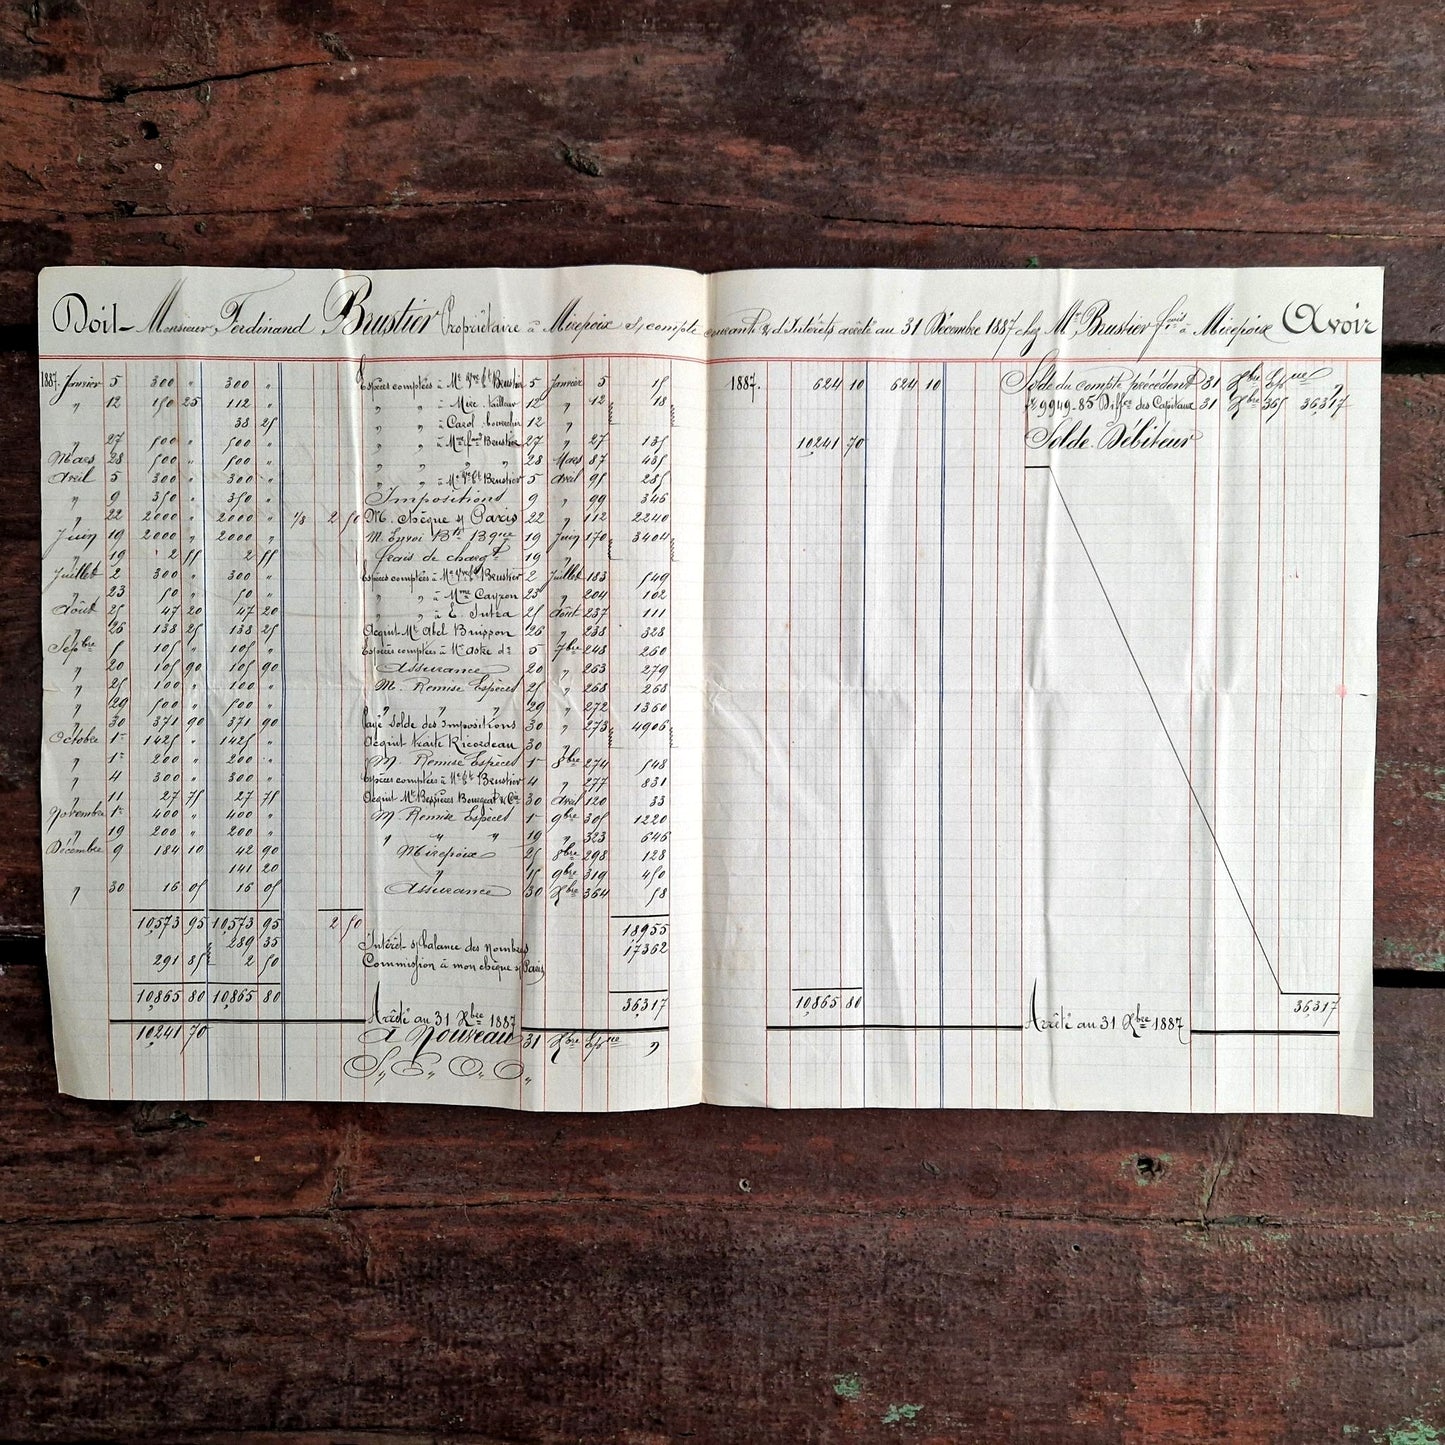 Doit Monsieur Ferdinand Brustier Propriétaire à Mirepoix s/ compte courant & d'Intérêts arrêté au 31 Décembre 1887 chez Mr Brustier à Mirepoix Avoir
1887. Janvier 5 300 " 300 " Espèces comptées à Brustier 5 Janvier 5 15
" 12 150 25 112 " " " à Mire. tailleur 12 " 12 18
38 25 " " à Carol 12 "
" 27 500 " 500 " " " à Brustier 27 " 27 135
Mars 28 500 " 500 " " " " " 28 Mars 87 435
Avril 5 300 " 300 " " " à Brustier 5 Avril 95 285
" 9 350 " 350 " Impositions 9 " 99 346
" 22 2000 " 2000 " 1/8 2 50 M. chèque s/ Paris 22 " 112 2240
Juin 19 2000 " 2000 " M. Envoi Bts Bque 19 Juin 170 3404
" 19 2 55 2 55 frais de chargt 19 "
Juillet 2 300 " 300 " Espèces comptées à Brustier 2 Juillet 183 549
" 23 50 " 50 " " " à Mme Cayron 23 " 204 102
Août 25 47 20 47 20 " " à E. 25 Août 237 111
" 26 138 25 138 25 Acquit Mt Abel Buisson 26 " 238 328
Sepbre 5 105 " 105 " Espèces comptées à 5 7bre 248 260
" 20 105 90 105 90 Assurance 20 " 263 279
" 25 100 " 100 " M. Remise Espèces 25 " 268 268
" 29 500 " 500 " " " " 29 " 272 1360
" 30 371 90 371 90 Payé Solde des Impositions 30 " 273 4906
Octobre 1er 1425 " 1425 " Acquit traite Ricordeau 30 "
" 1er 200 " 200 " M. Remise Espèces 1er 8bre 274 548
" 4 300 " 300 " Espèces comptées à Brustier 4 " 277 831
" 11 27 75 27 75 Acquit Mt Bessières Bourgeat & Cie 30 Avril 120 33
Novembre 1er 400 " 400 " M Remise Espèces 1er 9bre 305 1220
" 19 200 " 200 " " " " 19 " 323 646
Décembre 9 184 10 42 90 Mirepoix 25 8bre 298 128
141 20 " 15 9bre 319 450
" 30 16 05 16 05 Assurance 30 Xbre 364 58
10,573 95 10,573 95 2 50 18955
289 35 Intérêt s/ balance des Nombres 17362
291 85 2 50 Commission à mon chèque s/ Paris
10,865 80 10,865 80 36,317
Arrêté au 31 Xbre 1887
10,241 70 A Nouveau 31 Xbre Epque "
S. E. O. O.
1887. 624 10 624 10 Solde du compte précédent 31 Xbre Epque "
s/ 9949-85 Diffce des Capitaux 31 Xbre 365 36317
10,241 70 Solde Débiteur
10,865 80 36,317
Arrêté au 31 Xbre 1887